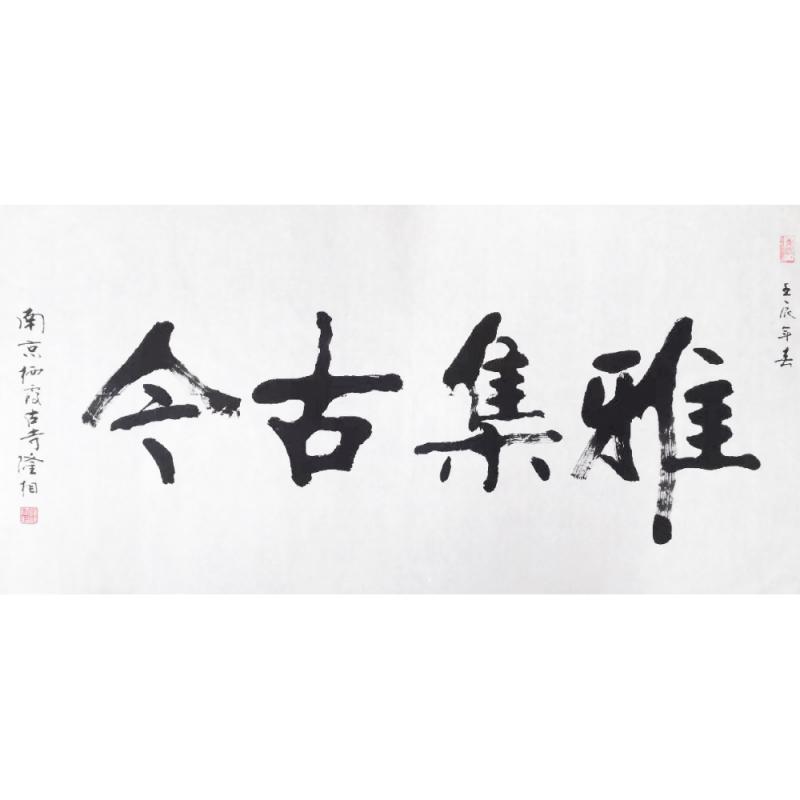 壬辰年春
雅集古今
南京栖霞古寺隆相